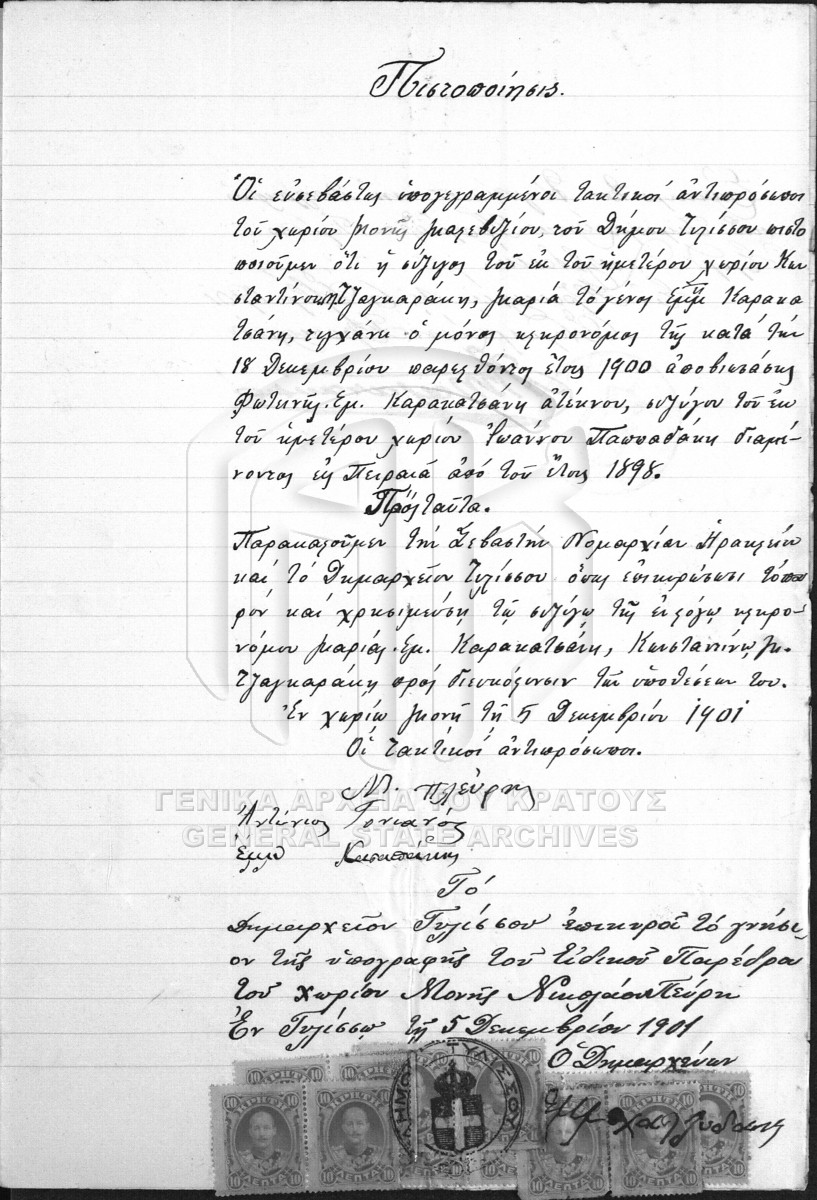 Πιστοποίησις.
Οἱ εὐσεβάστως ὑπογεγραμμένοι τακτικοί ἀντιπρόσωποι
τοῦ χωρίου Μονῆς Μαλεβυζίου, τοῦ Δήμου Τυλίσσου πιστο
ποιοῦμεν ὅτι ἡ σύζυγος τοῦ ἐκ τοῦ ἡμετέρου χωρίου Κων
σταντίνου Τζαγκαράκη, Μαρία τὸ γένος Ἐμμ Καρακα
τσάνη, τυγχάνει ὁ μόνος κληρονόμος τῆς κατά τήν
18 Δεκεμβρίου παρελθόντος ἔτους 1900 ἀποβιωσάσης
Φωτεινῆς. Εμ. Καρακατσάνη ἀτέκνου, συζύγου τοῦ ἐκ
τοῦ ἡμετέρου χωρίου Ἰωάννου Παππαδάκη διαμέ-
νοντος εἰς Πειραιᾶ ἀπό τοῦ ἔτους 1898.
Πρός ταῦτα.
Παρακαλοῦμεν τήν Σεβαστήν Νομαρχίαν Ἡρακλείου
καί τό Δημαρχεῖον Τυλίσσου ὅπως ἐπικυρώσωσι τό πα
ρόν καί χρησιμεύσῃ τῷ συζύγῳ τῆς ἐν λόγῳ κληρο-
νόμου Μαρίας. Εμ. Καρακατσάνη, Κωνσταντίνῳ Μ.
Τζαγκαράκη πρός διευκόλυνσιν τῶν ὑποθέσεων του.
Ἐν χωρίῳ Μονῇ τῇ 5 Δεκεμβρίου 1901
Οἱ τακτικοί ἀντιπρόσωποι.
Ν. Πλεύρης
ΓΕΝΙΚΑ ΑΡΧΕΙΑ ΤΟΥ ΚΡΑΤΟΥΣ
Ἀντώνιος
GENERAL STATE ARCHIVES
Τό
Δημαρχεῖον Τυλίσσου ἐπικυροῖ τό γνήσι-
ον τῆς ὑπογραφῆς τοῦ Εἰδικοῦ Παρέδρου
τοῦ χωρίου Μονῆς Νικολάου Πλεύρη
Ἐν Τυλίσσῳ τῇ 5 Δεκεμβρίου 1901
Ὁ Δημαρχεύων
ΔΗΜΟΣ ΤΥΛΙΣΣΟΥ
10 ΛΕΠΤΑ 10
10 ΛΕΠΤΑ 10
10 ΛΕΠΤΑ 10
10 ΛΕΠΤΑ 10